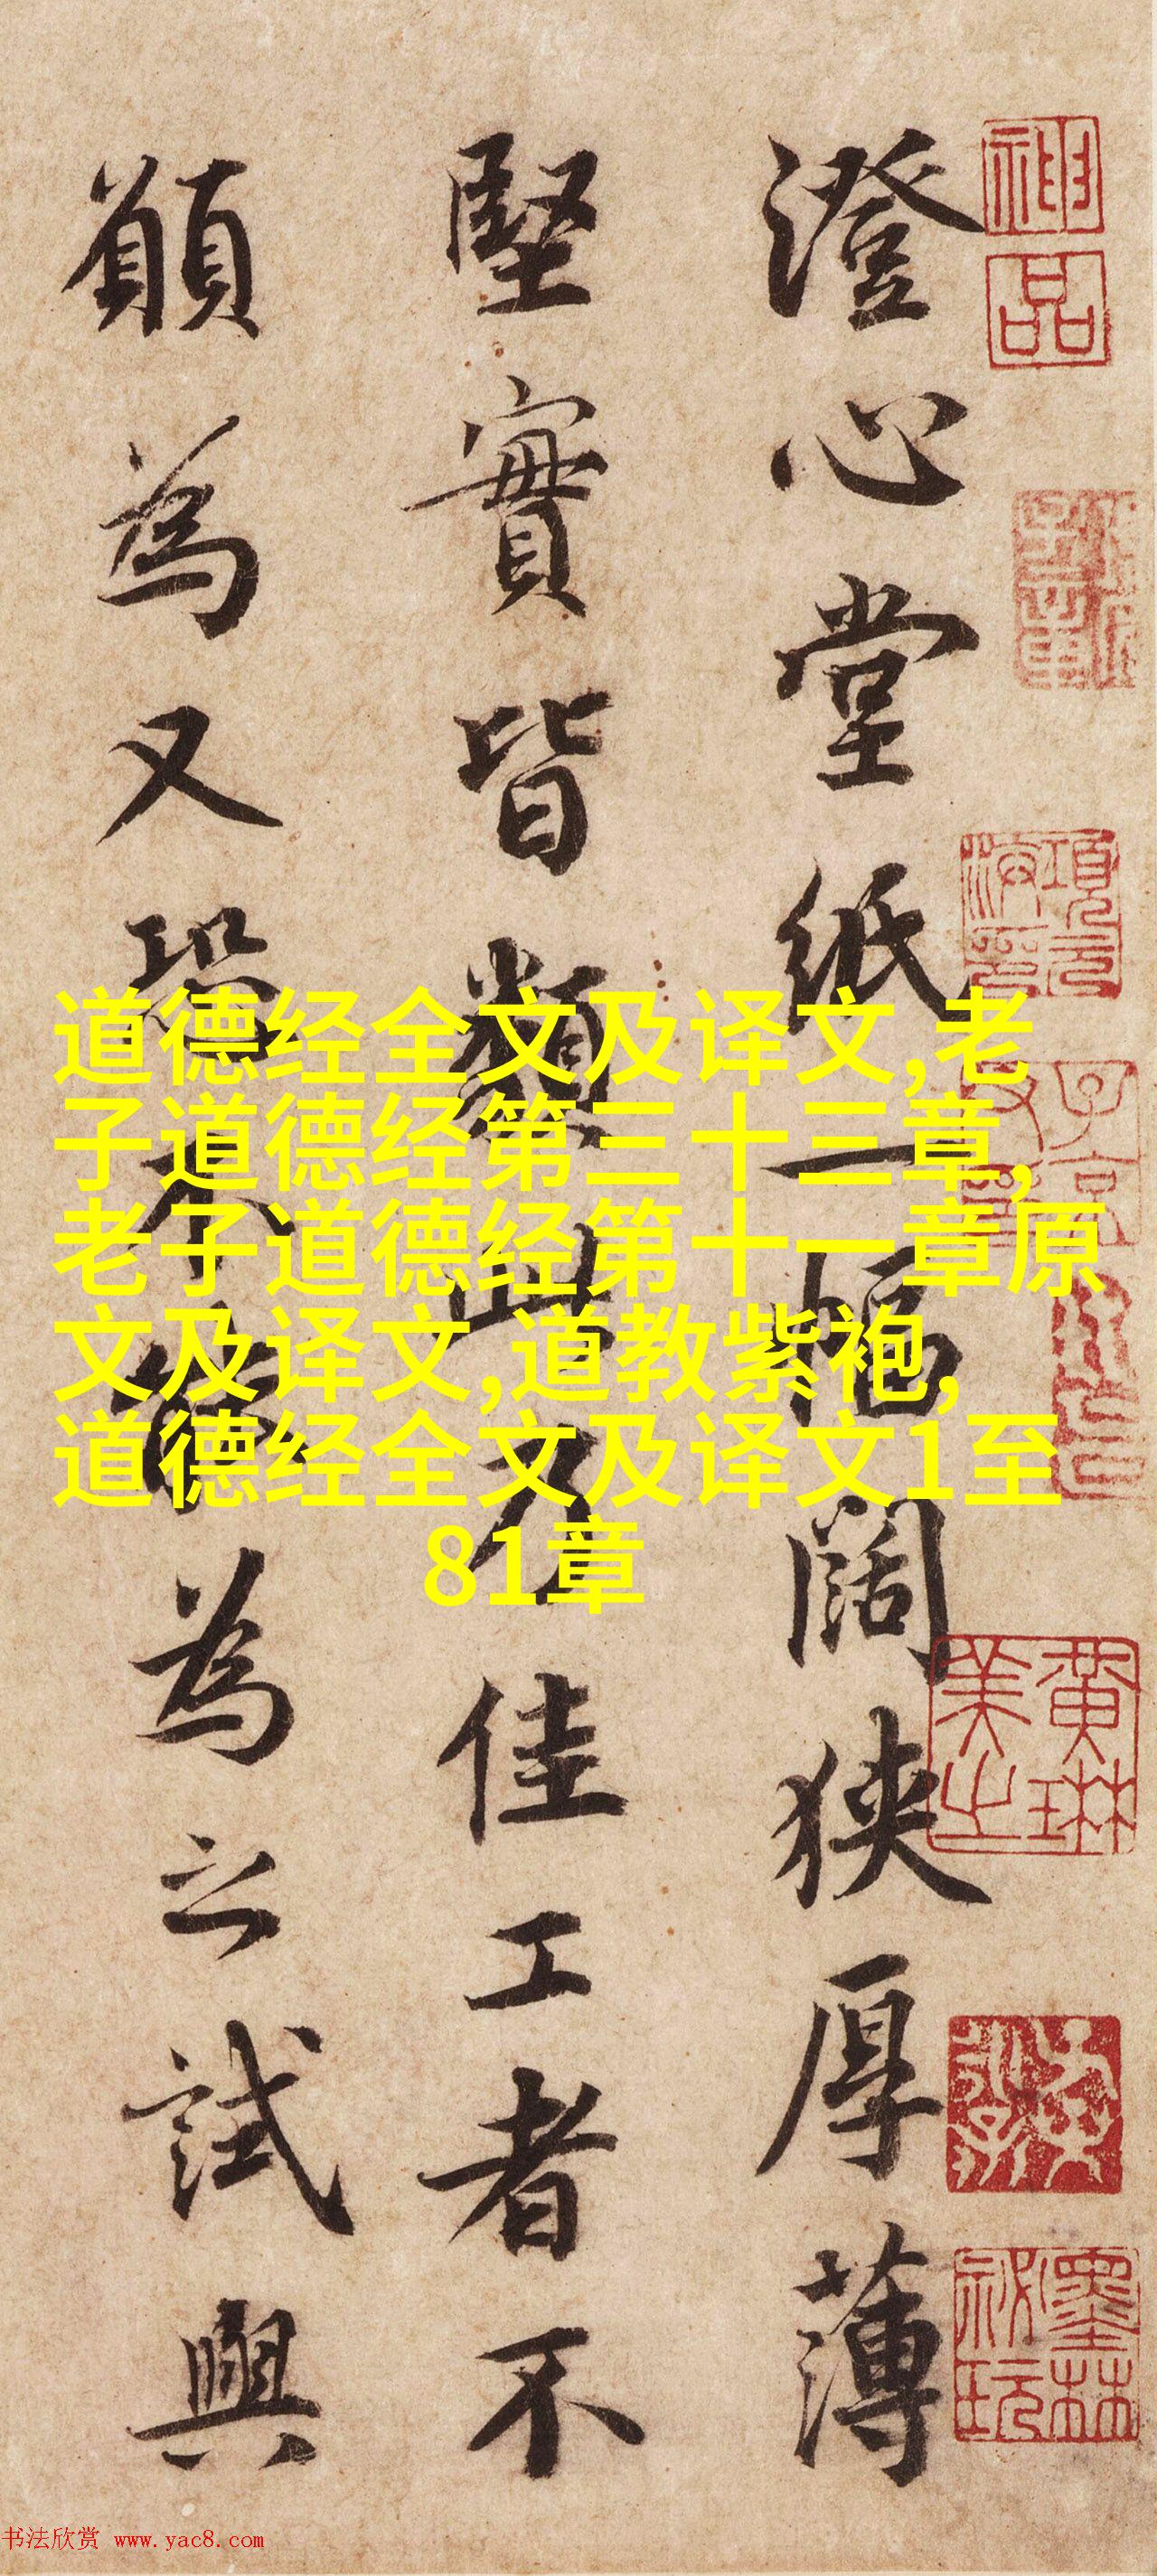 神品
黃琳美之
墨林祕玩
澄心堂紙一幅闊狹厚薄
堅實皆類此乃佳工者不
願為又恐不能為之試與
道德经全文及译文,老
子道德经第三十三章,
老子道德经第十一章原
文及译文,道教紫袍,
道德经全文及译文1至
81章
书法欣赏 www.yac8.com